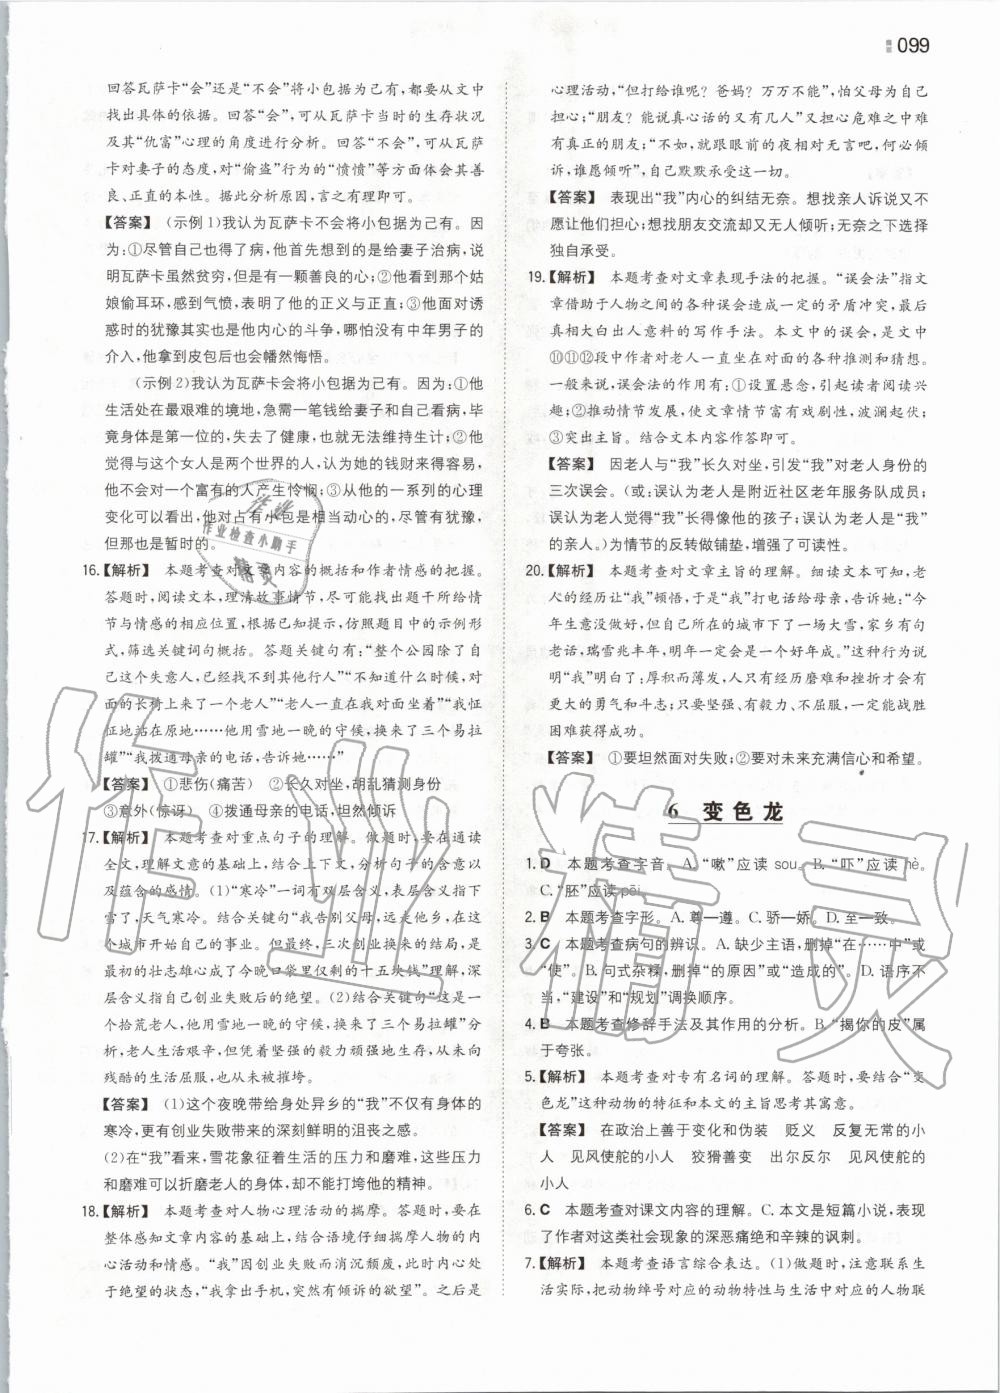 099
回答瓦萨卡“会”还是“不会”将小包据为己有，都要从文中
找出具体的依据。回答“会”，可从瓦萨卡当时的生存状况
及其“仇富”心理的角度进行分析。回答“不会”，可从瓦萨
卡对妻子的态度，对“偷盗”行为的“愤愤”等方面体会其善
良、正直的本性。据此分析原因，言之有理即可。
【答案】 (示例1)我认为瓦萨卡不会将小包据为己有。因
为:①尽管自己也得了病，他首先想到的是给妻子治病，说
明瓦萨卡虽然贫穷，但是有一颗善良的心;②他看到那个姑
娘偷耳环，感到气愤，表明了他的正义与正直;③他面对诱
惑时的犹豫其实也是他内心的斗争，哪怕没有中年男子的
介入，他拿到皮包后也会幡然悔悟。
(示例2)我认为瓦萨卡会将小包据为己有。因为:①他
生活处在最艰难的境地，急需一笔钱给妻子和自己看病，毕
竟身体是第一位的，失去了健康，也就无法维持生计;②他
觉得与这个女人是两个世界的人，认为她的钱财来得容易，
他不会对一个富有的人产生怜悯;③从他的一系列的心理
变化可以看出，他对占有小包是相当动心的，尽管有犹豫，
但那也是暂时的。
16.【解析】 本题考查对文章内容的概括和作者情感的把握。
答题时，阅读文本，理清故事情节，尽可能找出题干所给情节
与情感的相应位置，根据已知提示，仿照题目中的示例形
式，筛选关键词句概括。答题关键句有:“整个公园除了我
这个失意人，已经找不到其他行人”“不知道什么时候，我对
面的长椅上来了一个老人”“老人一直在我对面坐着”“我怔
怔地站在原地……他用雪地一晚的守候，换来了三个易拉
罐”“我拨通母亲的电话，告诉她……”
【答案】 ①悲伤(痛苦) ②长久对坐，胡乱猜测身份
③意外(惊讶) ④拨通母亲的电话，坦然倾诉
17.【解析】 本题考查对重点句子的理解。做题时，要在通读
全文，理解文意的基础上，结合上下文，分析句子的含意以
及蕴含的感情。(1)“寒冷”一词有双层含义，表层含义指下
雪了，天气寒冷。结合关键句“我告别父母，远走他乡，在这
个城市开始自己的事业。但最终，三次创业换来的结局，是
最初的壮志雄心成了今晚口袋里仅剩的十五块钱”理解，深
层含义指自己创业失败后的绝望。(2)结合关键句“这是一
个拾荒老人，他用雪地一晚的守候，换来了三个易拉罐”分
析，老人生活艰辛，但凭着坚强的毅力顽强地生存，从未向
残酷的生活屈服，也从未被摧垮。
【答案】 (1)这个夜晚带给身处异乡的“我”不仅有身体的
寒冷，更有创业失败带来的深刻鲜明的沮丧之感。
(2)在“我”看来，雪花象征着生活的压力和磨难，这些压力
和磨难可以折磨老人的身体，却不能打垮他的精神。
18.【解析】 本题考查对人物心理活动的揣摩。答题时，要在
整体感知文章内容的基础上，结合语境仔细揣摩人物的内
心活动和情感。“我”因创业失败而消沉颓废，此时内心处
于绝望的状态，“我拿出手机，突然有倾诉的欲望”。之后是
心理活动，“但打给谁呢？爸妈？万万不能”，怕父母为自己
担心;“朋友？能说真心话的又有几人”又担心危难之中难
有真正的朋友;“不如，就跟眼前的夜相对无言吧，何必倾
诉，谁愿倾听”，自己默默承受这一切。
【答案】 表现出“我”内心的纠结无奈。想找亲人诉说又不
愿让他们担心;想找朋友交流却又无人倾听;无奈之下选择
独自承受。
19.【解析】 本题考查对文章表现手法的把握。“误会法”指文
章借助于人物之间的各种误会造成一定的矛盾冲突，最后
真相大白出人意料的写作手法。本文中的误会，是文中
⑩⑪⑫段作者对老人一直坐在对面的各种推测和猜想。
一般来说，误会法的作用有:①设置悬念，引起读者阅读兴
趣;②推动情节发展，使文章情节富有戏剧性，波澜起伏;
③突出主旨。结合文本内容作答即可。
【答案】 因老人与“我”长久对坐，引发“我”对老人身份的
三次误会。(或:误认为老人是附近社区老年服务队成员;
误认为老人觉得“我”长得像他的孩子;误认为老人是“我”
的亲人。)为情节的反转做铺垫，增强了可读性。
20.【解析】 本题考查对文章主旨的理解。细读文本可知，老
人的经历让“我”顿悟，于是“我”打电话给母亲，告诉她:“今
年生意没做好，但自己所在的城市下了一场大雪，家乡有句
老话，瑞雪兆丰年，明年一定会是一个好年成。”这种行为说
明“我”已悟得:厚积而薄发，人只有经历磨难和挫折才会有
更大的勇气和斗志;只要坚强、有毅力、不屈服，一定能战胜
困难获得成功。
【答案】 ①要坦然面对失败;②要对未来充满信心和希望。
6 变色龙
1. D 本题考查字音。A.“嗽”应读 sou。B.“吓”应读 hè。
C.“胚”应读 pēi。
2. B 本题考查字形。A. 尊—遵。C. 骄—娇。D. 至—致。
3. C 本题考查病句的辨识。A. 缺少主语，删掉“在……中”或
“使”。B. 句式杂糅，删掉“的原因”或“造成的”。D. 语序不
当，“建设”和“规划”调换顺序。
4. B 本题考查修辞手法及其作用的分析。B.“揭你的皮”属
于夸张。
5.【解析】 本题考查对专有名词的理解。答题时，要结合“变
色龙”这种动物的特征和本文的主旨思考其寓意。
【答案】 在政治上善于变化和伪装 贬义 反复无常的小
人 见风使舵的小人 狡猾善变 出尔反尔 见风使舵的
小人
6. C 本题考查对课文内容的理解。C. 本文是短篇小说，表现
了作者对这类社会现象的深恶痛绝和辛辣的讽刺。
7.【解析】 本题考查语言综合表达。(1)做题时，注意联系生
活实际，把动物绰号对应的动物特性与生活中对应的人物联
作业精灵
作业
作业检查小助手